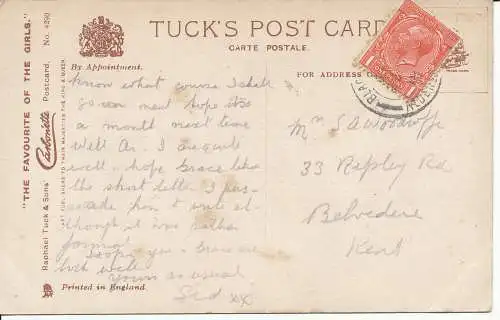 TUCK'S POST CARD
CARTE POSTALE.
By Appointment.
FOR ADDRESS
"THE FAVOURITE OF THE GIRLS."
Raphael Tuck & Sons' "Carbonette" Postcard, No. 4290
ART PUBLISHERS TO THEIR MAJESTIES THE KING & QUEEN.
know what course I shall
go on next hope its
a month next time
Well Au. I am quite
well. hope Grace like
the short letter I per-
suade him to write al-
though it was rather
formal
I hope you & Grace are
both well
yours as usual
Sid xx
Mrs S A Woodroffe
33 Ripley Rd
Belvedere
Kent
Printed in England.